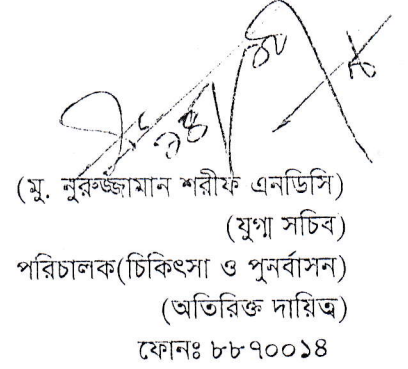 (মু. নুরুজ্জামান শরীফ এনডিসি)
(যুগ্ম সচিব)
পরিচালক(চিকিৎসা ও পুনর্বাসন)
(অতিরিক্ত দায়িত্ব)
ফোনঃ ৮৮৭০০১৪